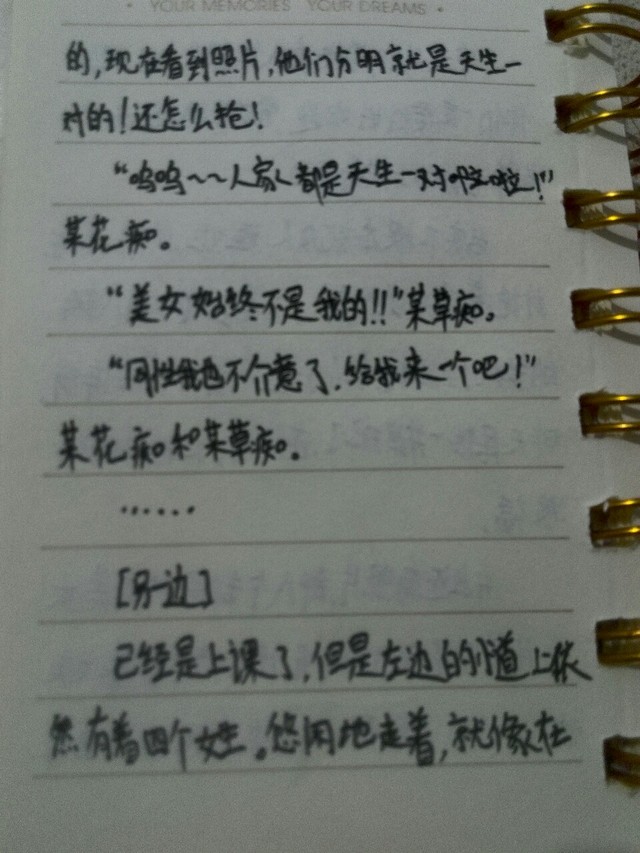 YOUR MEMORIES YOUR DREAMS
的,现在看到照片,他们分明就是天生一
对的!还怎么抢!
“呜呜~~人家都是天生一对啦啦!”
某花痴。
“美女始终不是我的!!”某草痴。
“同性我也不介意了,给我来一个吧!”
某花痴和某草痴。
……
[另一边]
已经是上课了,但是左边的小道上依
然有着四个女生。悠闲地走着,就像在